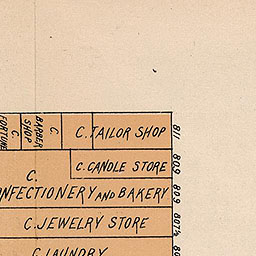 C.
FORTUNE
BARBER
SHOP
C
C. TAILOR SHOP
811
C. CANDLE STORE
809
C.
NFECTIONERY AND BAKERY
809
C. JEWELRY STORE
807½
C. LAUNDRY
80